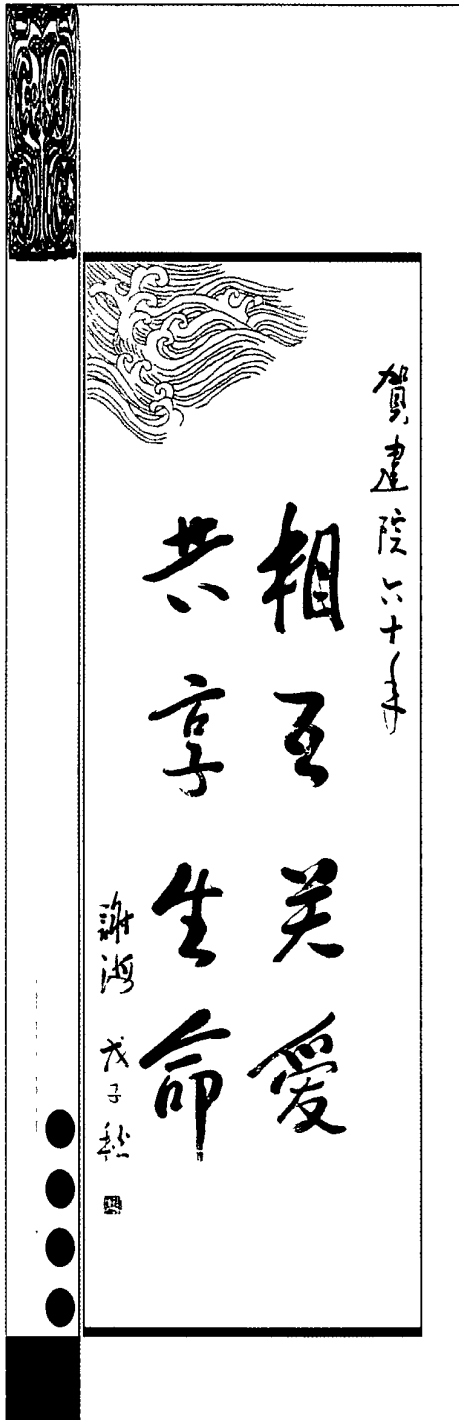 賀建院六十年
相互关爱
共享生命
謝海 戊子秋